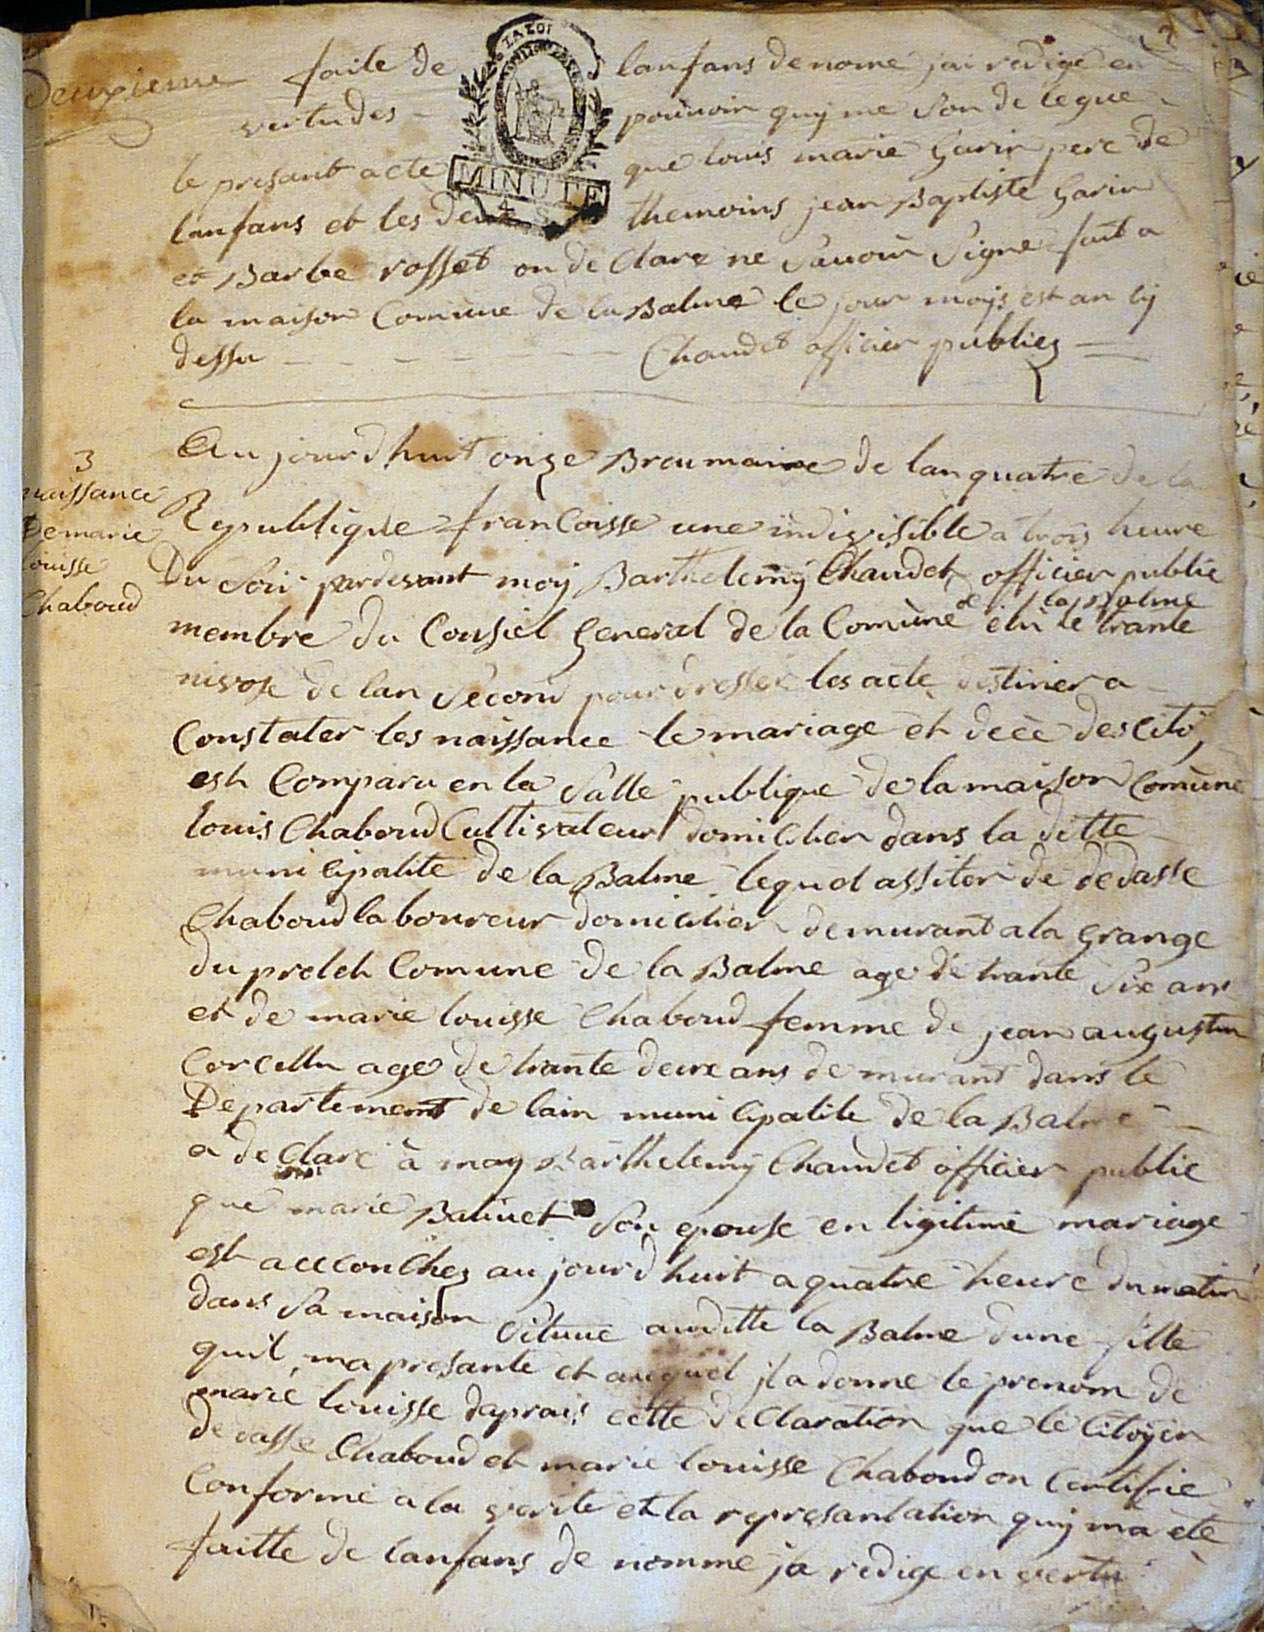 Deuxieme
faite de lanfans denomé jai rédigé en
vertu des pouvoir quy me son delegue
LA LOI
MINUTE
4 S
le presant acte que louis marie Garin pere de
lanfans et les deux themoins jean Baptiste Garin
et Barbe rosset on declare ne savoir signe fait a
la maison Comune de la Balme le jour moÿs est an cy
dessu Chaudet officier publicq
3
naissance
De marie
louisse
Chaboud
Aujourdhuit onze Broumaire de lan quatre de la
Republique francoisse une indivisible a trois heure
Du Soir pardevant moy Barthelemÿ Chaudet officier public
membre du Consiel General de la Comune de la Balme elu le trante
nivose de lan second pour dresser les acte destiner a
Constater les naissance le mariage et décè des Citoÿ
est Comparu en la Salle publique de la maison Comune
louis Chaboud Cultivateur domicilier dans la ditte
municipalite de la Balme lequel assiter de dedasse
Chaboud laboureur domicilier demurant a la Grange
du Comune de la Balme age de trante Six ans
et de marie louisse Chaboud femme de jean augustin
age de trante deux ans demurant dans le
Departement de lain municipalite de la Balme
a declaré à moy Barthelemÿ Chaudet officier public
que marie Son epouse en ligitime mariage
est acconchez aujourdhuit a quatre heure du matin
dans Sa maison Situué auditte la Balme dune fille
quil ma presante et auquel jl a donne le prenom de
marie louisse daprais cette declaration que le Citoÿen
dedasse Chaboud et marie louisse Chaboud on Certifie
Conforme a la verite et la represantation quÿ ma ete
faitte de lanfans de nomme ja redige en vertu